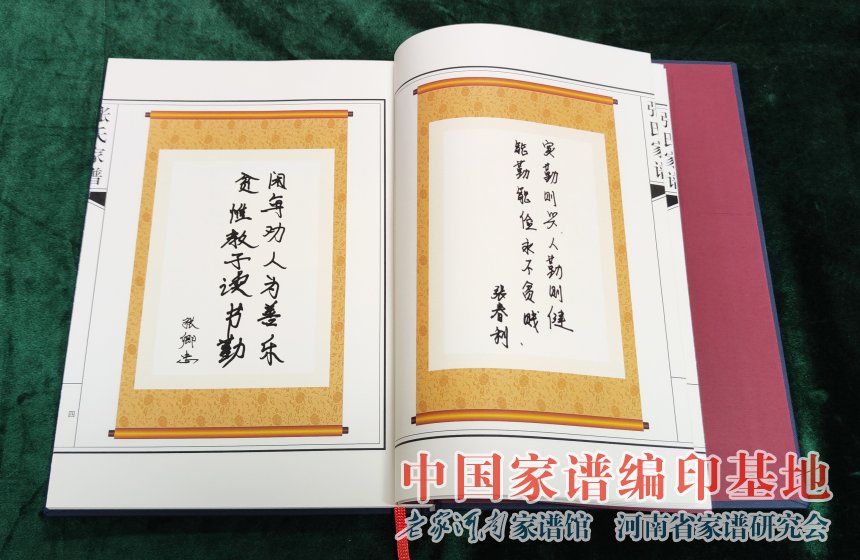 张氏家谱
闲每劝人为善乐
贫惟教子读书勤
张卿忠
四
家勤则兴、人勤则健
能勤能俭永不贫贱、
张春利
张氏家谱
张氏家谱
中国家谱编印基地
老家河南家谱馆 河南省家谱研究会